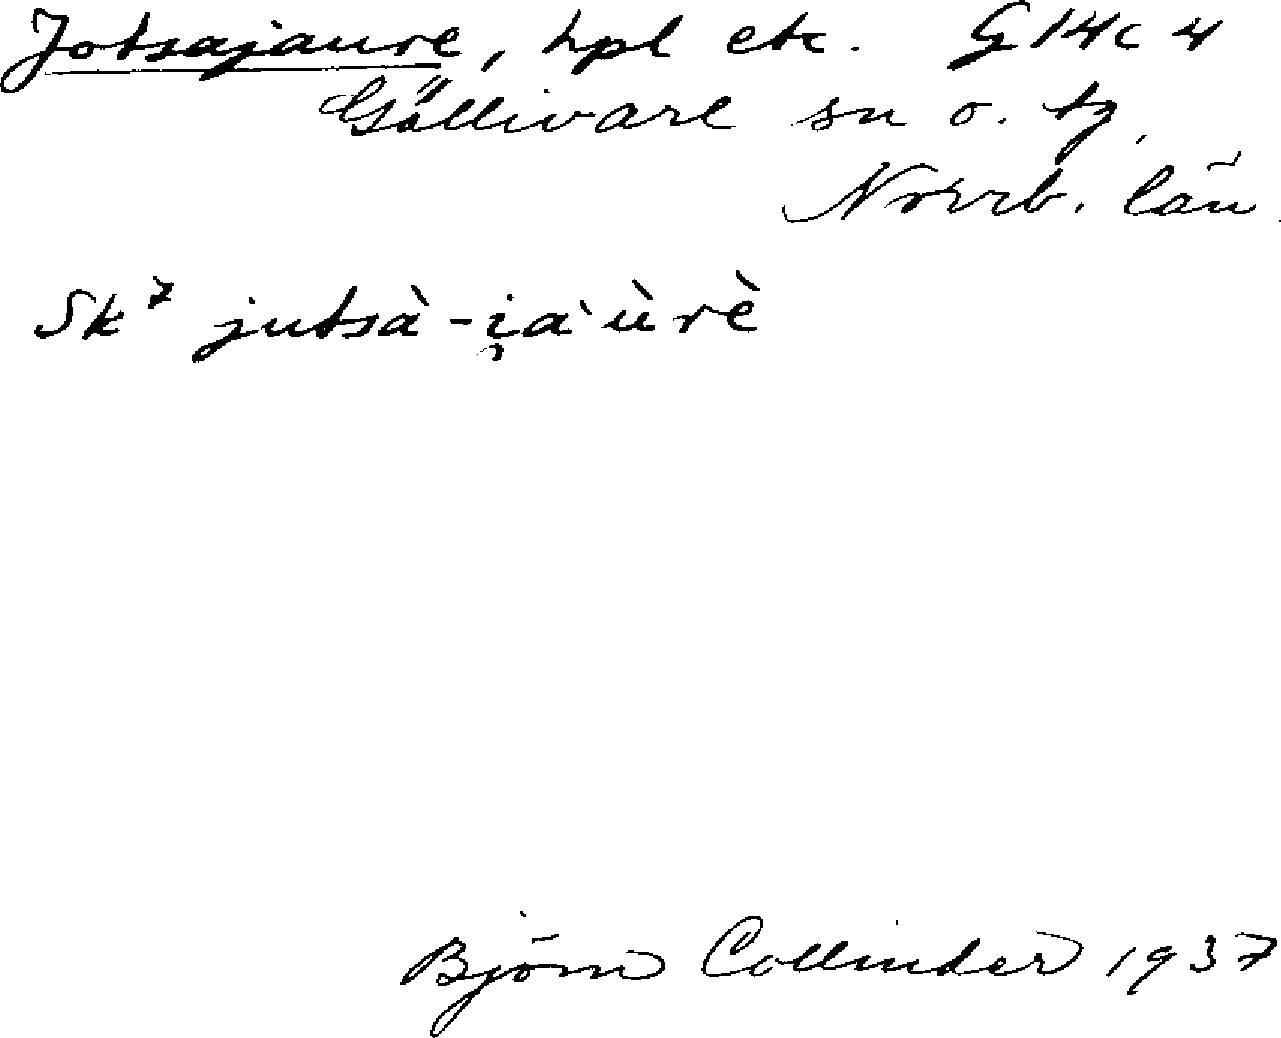 Jotsajaure, hpl etc. G 14c 4
Gällivare sn o. tg,
Norrb. län.
Sk⁷ jutsà-i̯a`ùrè
Björn Collinder 1937